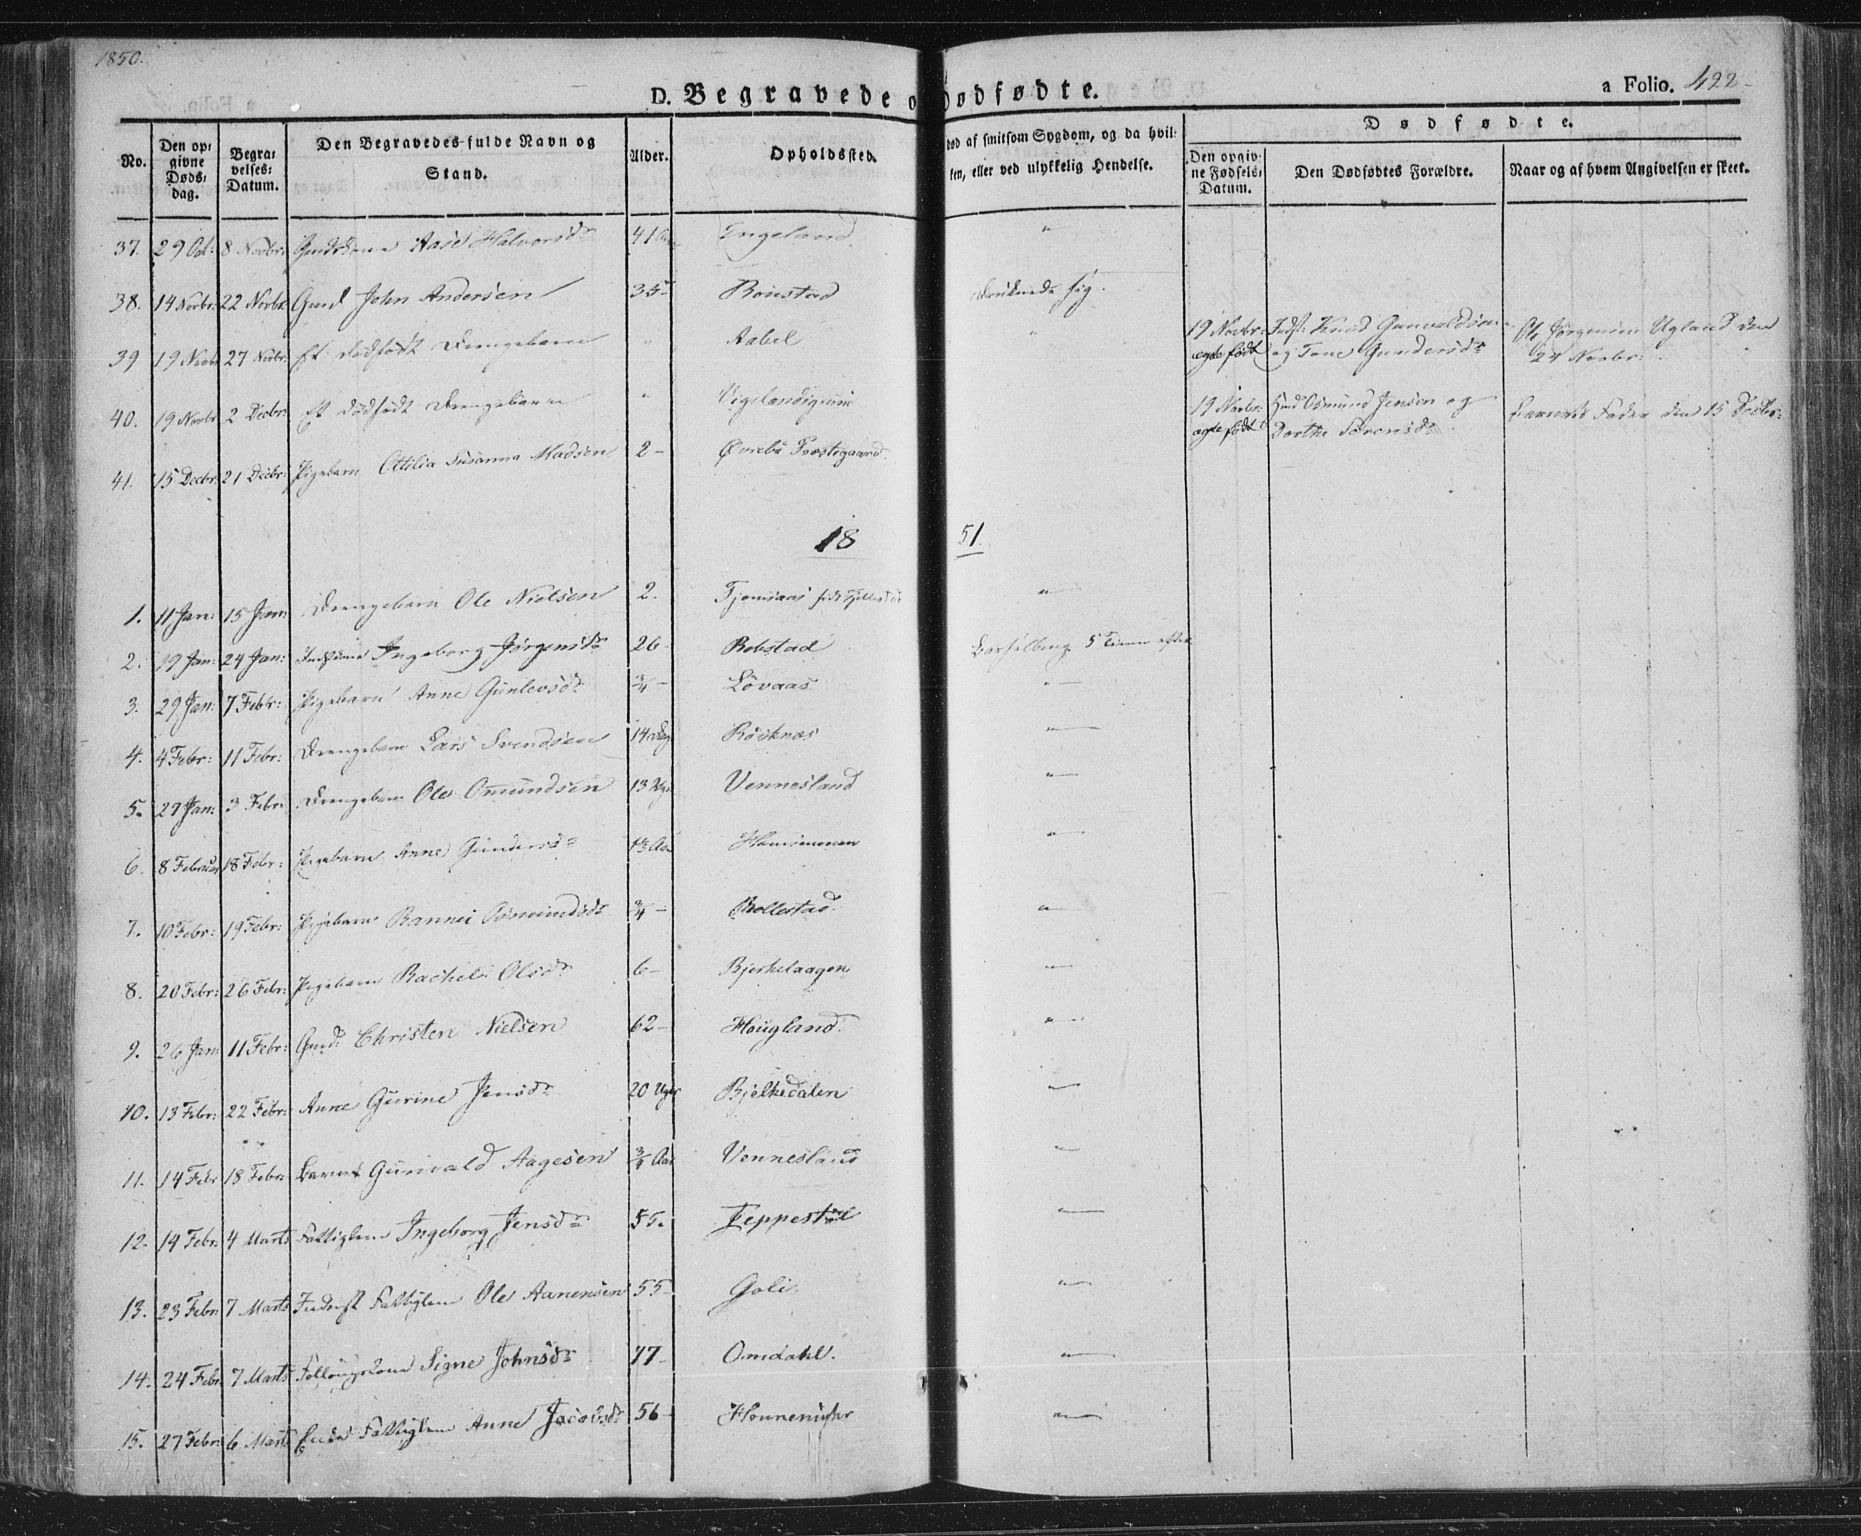 1850.
D. Begravede o Dødfødte.
a Folio. 422
No. Den opgivne Dødsdag. Begravelses-Datum. Den Begravedes fulde Navn og Stand. Alder. Opholdssted. død af smitsom Sygdom, og da hvilken, eller ved ulykkelig Hendelse. Dødfødte. Den opgivne Fødsels-Datum. Den Dødfødtes Forældre. Naar og af hvem Angivelsen er skeet.
37. 29 Oct: 8 Novbr: Aase Halvorsdr 41 Aar Ingeland "
38. 14 Novbr: 22 Novbr Gmd John Andersen 35 Boiestad Druknede sig.
39 19 Novbr 27 Novbr: Et dødfødt Drengebarn " Aabel " 19 Novbr: ægte født Knud Gunvaldsen og Tone Gundersdr Ole Jørgensen Ugland den 24 Novbr:
40. 19 Novbr 2 Decbr: Et dødfødt Drengebarn " 19 Novbr: ægte født Osmund Jensen og Dorthe Sørensdr Barnets Fader den 15 Decbr:
41. 15 Decbr: 21 Decbr: Pigebarn Ottilia Susanna Madsen 2 – Øvrebø Præstegaard
1851.
1. 11 Jan: 15 Jan: Drengebarn Ole Nielsen 2. Tjomsaas "
2. 19 Jan: 24 Jan: Ingeborg Jørgensdr 26 – Rebstad Barselseng 5 Timer efter
3. 29 Jan: 7 Febr: Pigebarn Anne Gunlevsdr 3/4 – Løvaas "
4. 4 Febr: 11 Febr: Drengebarn Lars Svendsen 14 Dag Røsknæs "
5. 27 Jan: 3 Febr: Drengebarn Ole Omundsen 13 Ug: Vennesland "
6. 8 Februar 18 Febr: Pigebarn Anne Gundersdr "
7. 10 Febr: 19 Febr: Pigebarn Rannei Osmundsdr 3/4 – Bollestad. "
8. 20 Febr: 26 Febr: Pigebarn Rachel Olsdr 6 – Bjerkelaagen "
9. 26 Jan: 11 Febr: Gmd: Christen Nielsen 62 – Hougland. "
10. 13 Febr: 22 Febr: Anne Gurine Jensdr 20 Uger Bjelkedalen "
11. 14 Febr 18 Febr: Barnet Gunvald Aagesen 3/4 Aar Vennesland "
12. 14 Febr: 4 Marts Fattiglem Ingeborg Jensdr 55. Teppestøl "
13. 23 Febr: 7 Marts Inderst Fattiglem Ole Aanensen 55 – Goli. "
14. 24 Febr: 7 Marts Føllougskone Signe Johnsdr 77 – Omdahl. "
15. 27 Febr: 6 Marts Fattiglem Anne Jacobsdr 56 – "